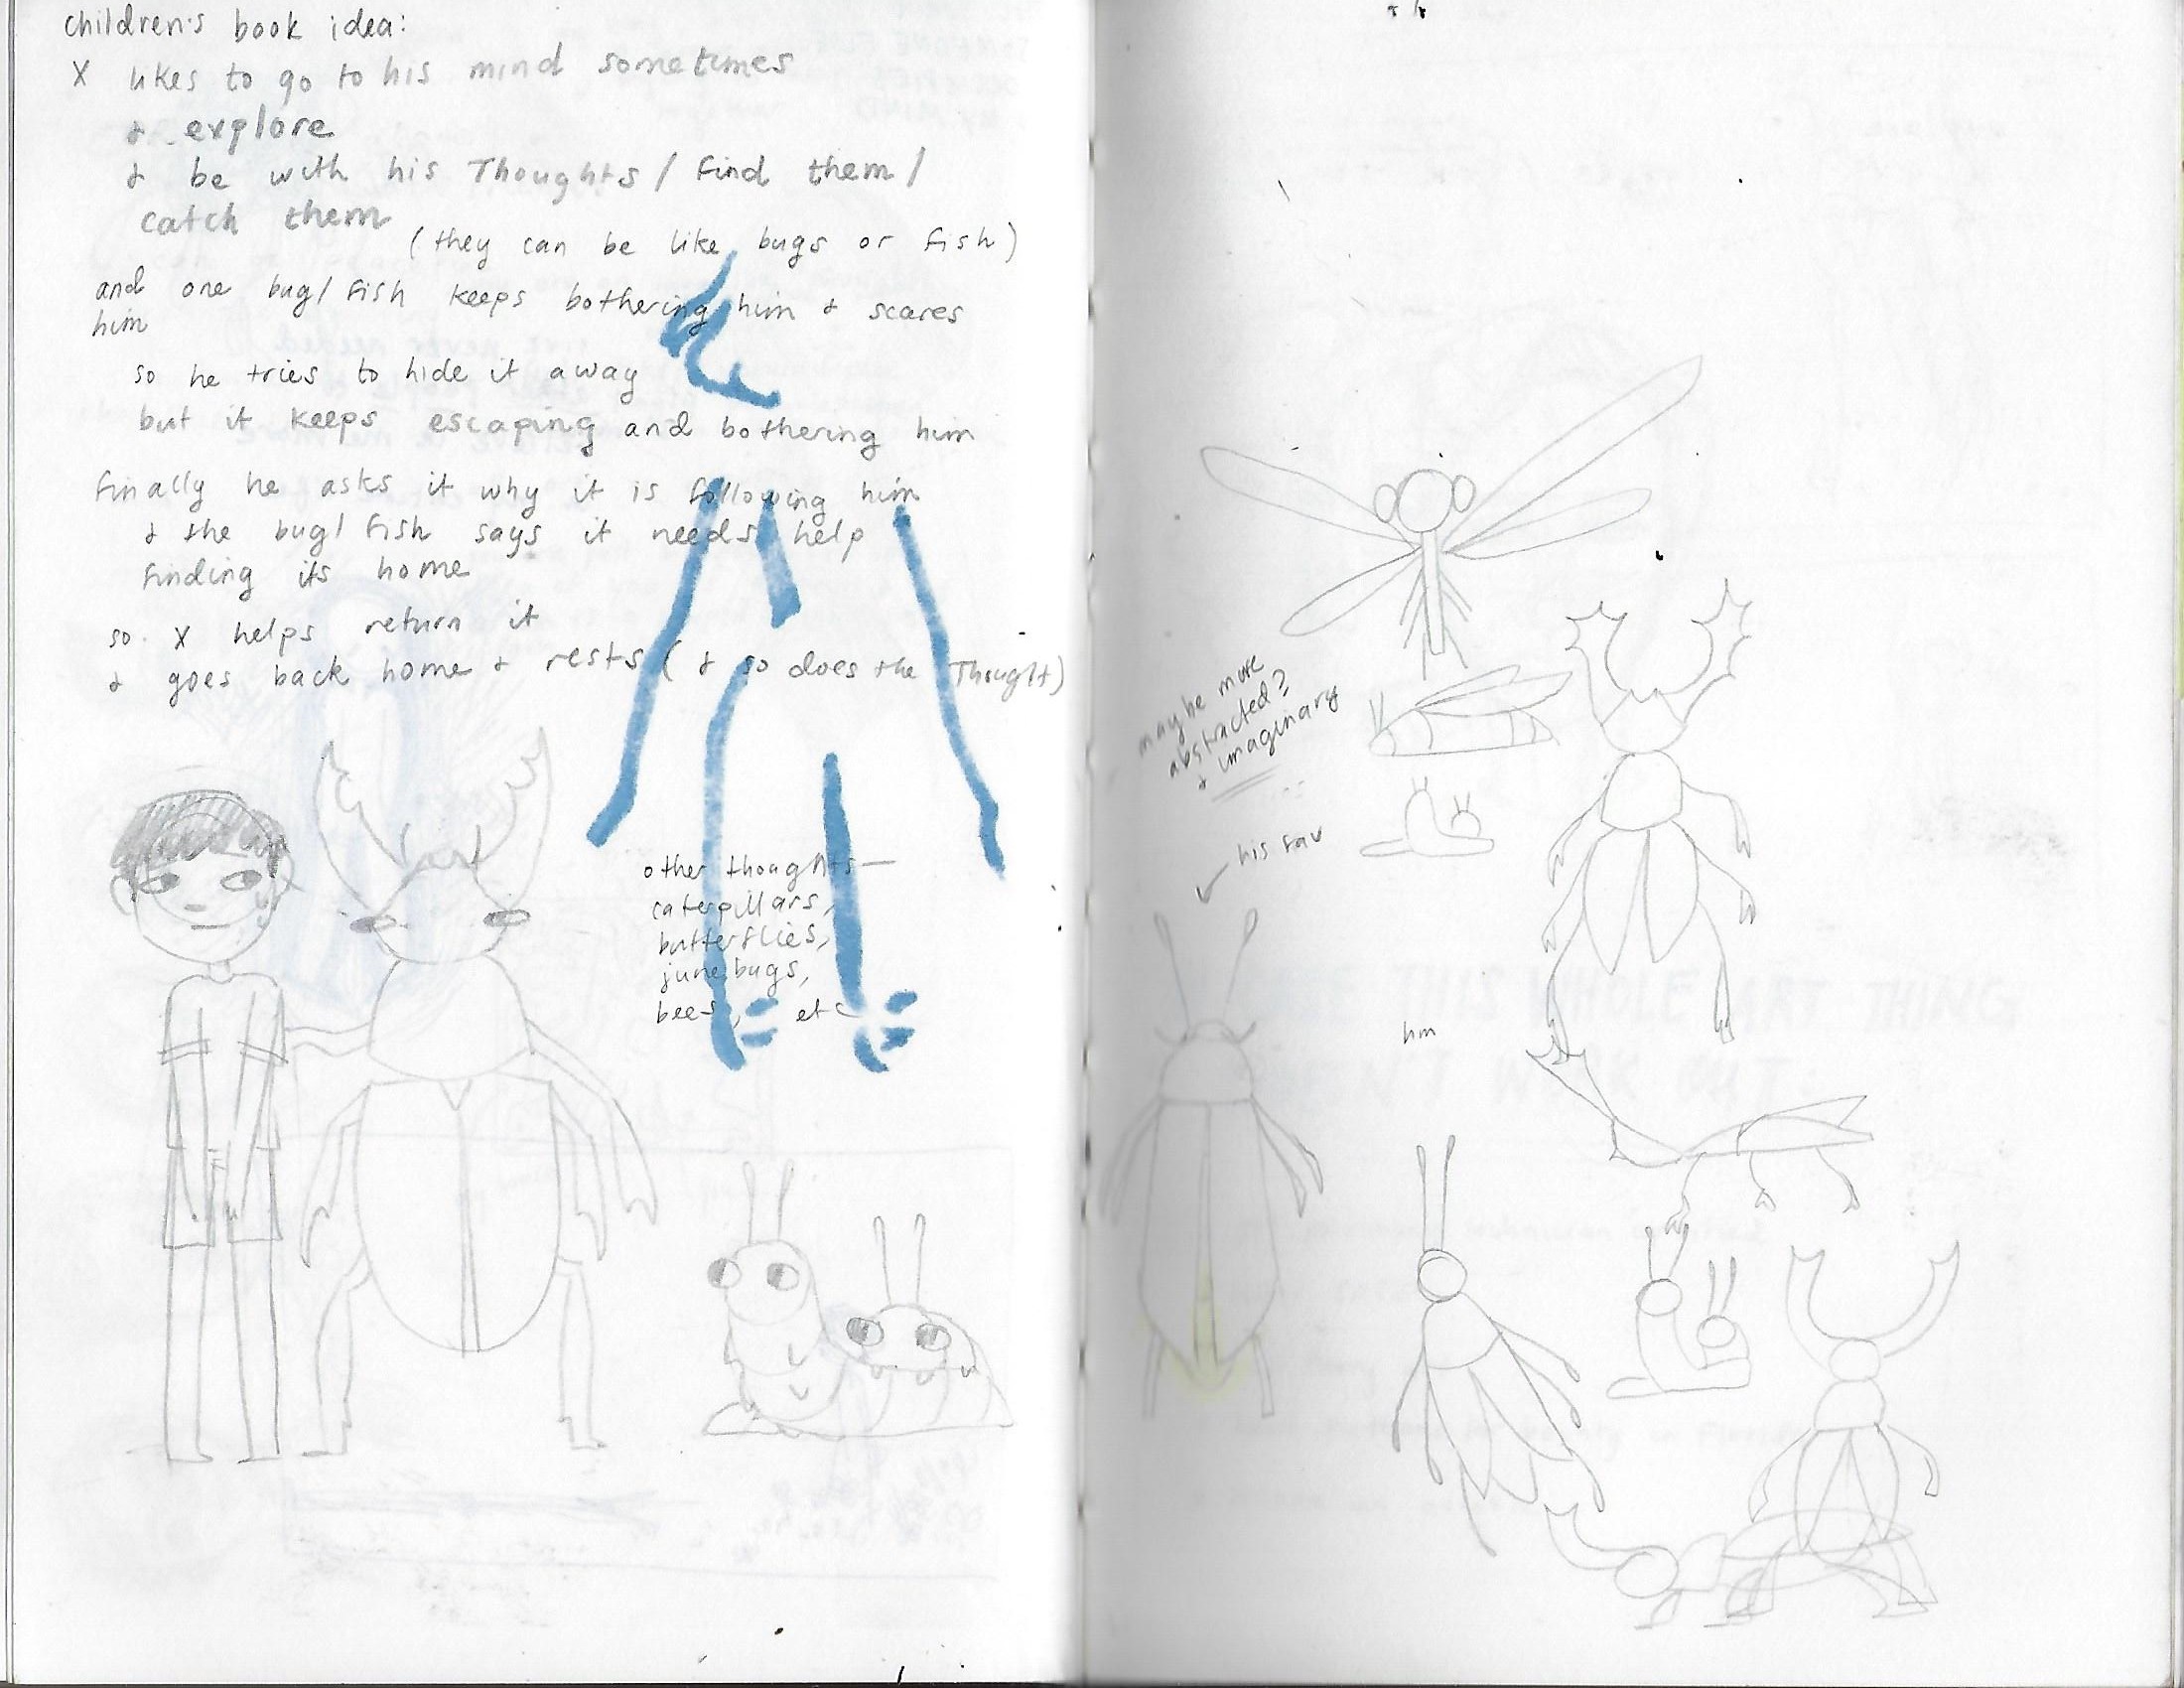 children's book idea:
X likes to go to his mind sometimes
& explore
& be with his Thoughts / find them /
catch them
(they can be like bugs or fish)
and one bug/fish keeps bothering him & scares
him
so he tries to hide it away
but it keeps escaping and bothering him
finally he asks it why it is following him
& the bug/fish says it needs help
finding its home
so X helps return it
& goes back home & rests (& so does the Thought)
other thoughts—
caterpillars,
butterflies,
june bugs,
bees, etc
maybe more
abstracted?
& imaginary
his fav
hm
THIS WHOLE ART THING